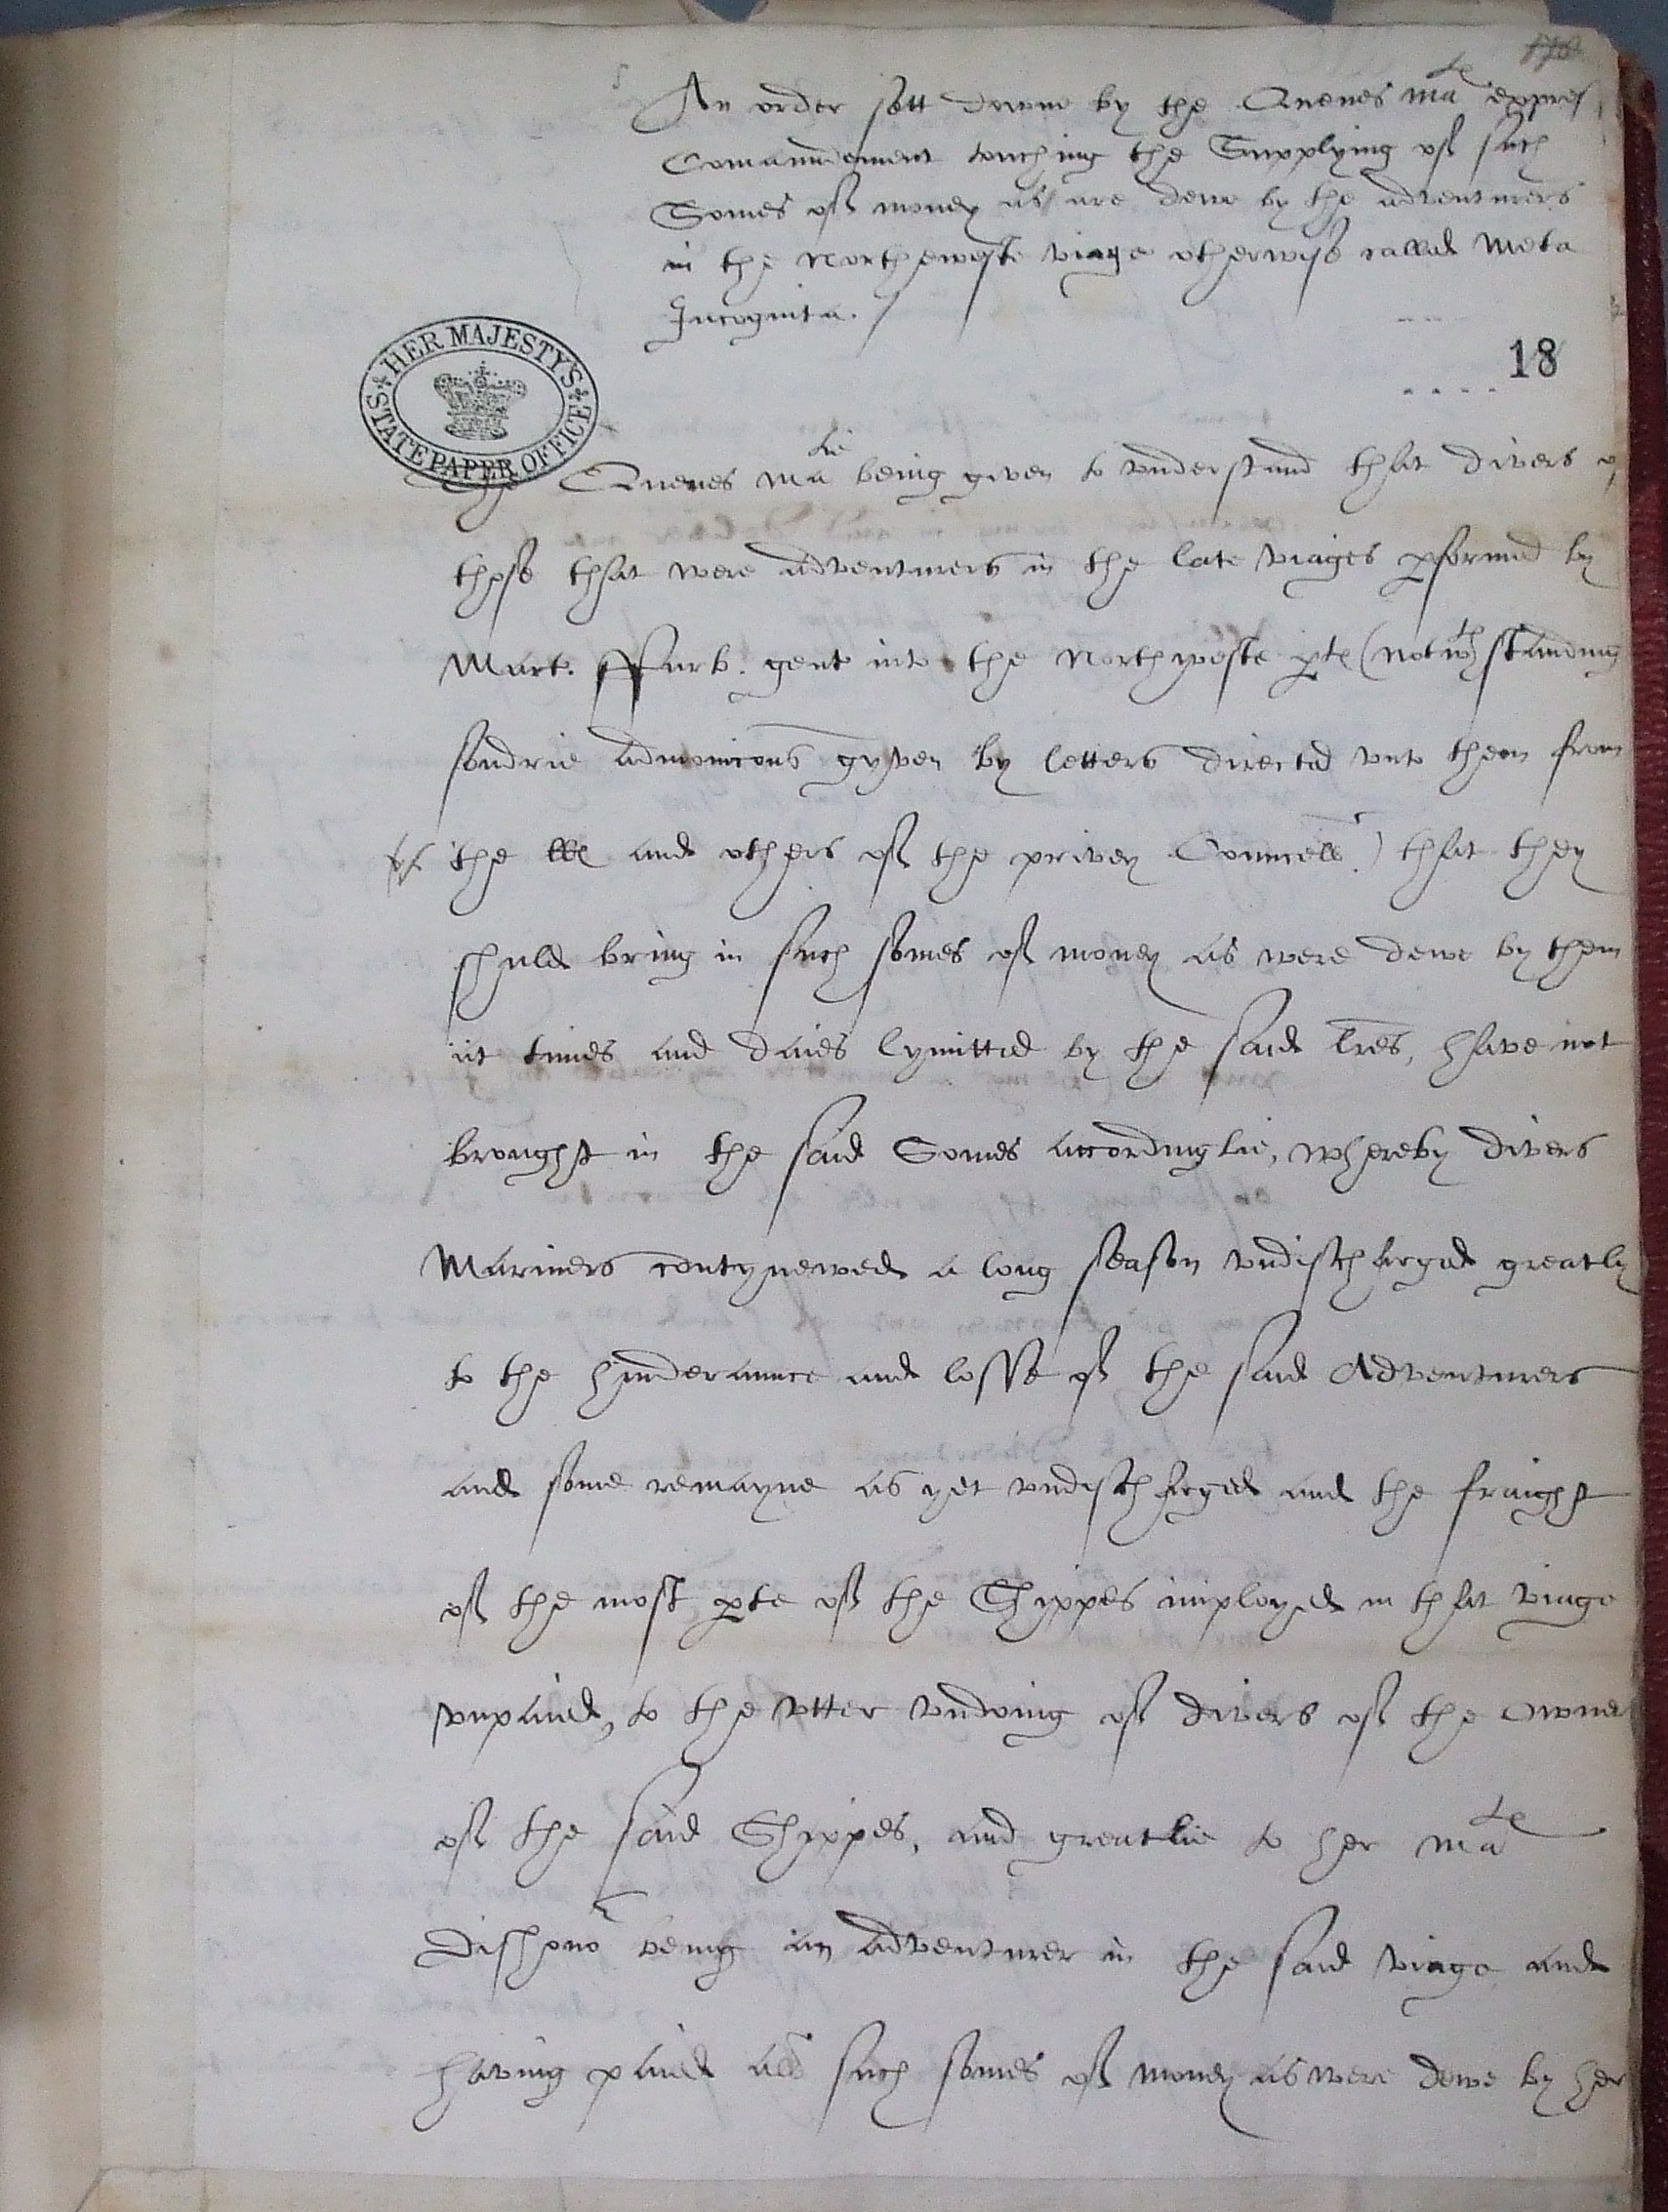 An order sett downe by the Quenes ma te expres
Comaundement touching the Supplying of such
Somes of money as are dewe by the adventurers
in the Northeweste viage otherwise called Meta
Incognita.
18
HER MAJESTY'S STATE PAPER OFFICE
The Quenes ma tie being given to vnderstand that divers of
those that were adventurers in the late viages pformed by
Mart. ffurb. gent into the Northweste pte (notwth standing
sondrie admonicons gyven by letters directed vnto them from
the ll and others of the privey Councell) that they
shuld bring in such somes of money as were dewe by them
at times and daies lymitted by the said lres, have not
brought in the said Somes accordinglie, whereby divers
Mariners contynewed a long season vndischarged greatly
to the hinderaunce and losse of the said Adventurers
and some remayne as yet vndischarged and the fraight
of the most pte of the Shippes imployed in that viage
vnpaied, to the vtter vndoing of divers of the owners
of the said Shippes, and greatlie to her ma te
dishono r being an adventurer in the said viage and
having paied all such somes of money as were dewe by her